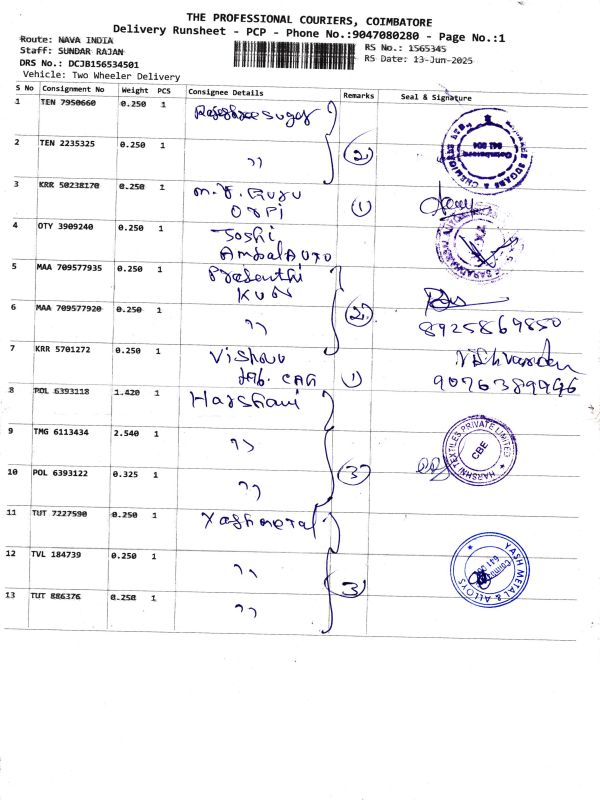 THE PROFESSIONAL COURIERS, COIMBATORE
Delivery Runsheet - PCP - Phone No.:9047080280 - Page No.:1
Route: NAVA INDIA
RS No.: 1565345
Staff: SUNDAR RAJAN
RS Date: 13-Jun-2025
DRS No.: DCJB156534501
Vehicle: Two Wheeler Delivery
S No Consignment No Weight PCS Consignee Details Remarks Seal & Signature
1 TEN 7950660 0.250 1
2 TEN 2235325 0.250 1 " 2
3 KRR 50238170 0.250 1 M.J. Guru
1
4 OTY 3909240 0.250 1 Joshi
Ambal AUTO
5 MAA 709577935 0.250 1 Prasanthi
KUN
6 MAA 709577920 0.250 1 " 2 8925869850
7 KRR 5701272 0.250 1 Vishnu
1 9076389996
8 POL 6393118 1.420 1 Harshani
9 TMG 6113434 2.540 1 "
10 POL 6393122 0.325 1 " 3
HARSHNI TEXTILES PRIVATE LIMITED
CBE
11 TUT 7227590 0.250 1 Yashmetal
12 TVL 184739 0.250 1 "
13 TUT 886376 0.250 1 " 3
YASH METAL & ALLOYS